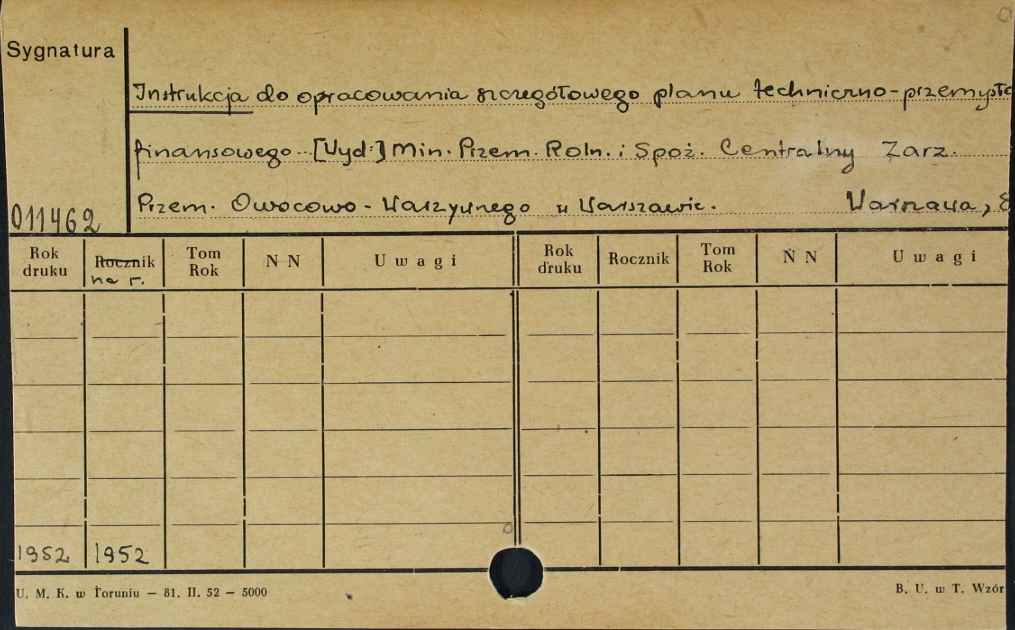 Sygnatura
Instrukcja do opracowania szczegółowego planu techniczno-przemysło
finansowego. [Wyd:] Min. Przem. Roln. i Spoż. Centralny Zarz.
Przem. Owocowo-Warzywnego w Warszawie. Warszawa,
011462
Rok druku Rocznik Tom Rok N N Uwagi Rok druku Rocznik Tom Rok N N Uwagi
na r.
1952 1952
U. M. K. w Toruniu — 81. II. 52 — 5000 B. U. w T. Wzór